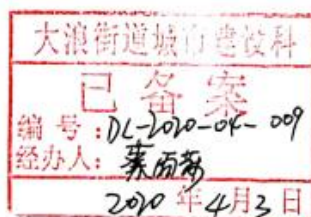 大浪街道城市建设科
已备案
编号:DL-2020-04-009
经办人:
2020年4月3日